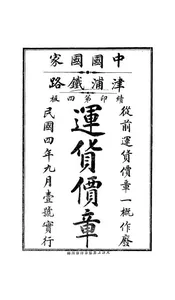 中國國家
津浦鐵路
續印第四版
從前運貨價章一概作廢
運貨價章
民國四年九月壹號實行